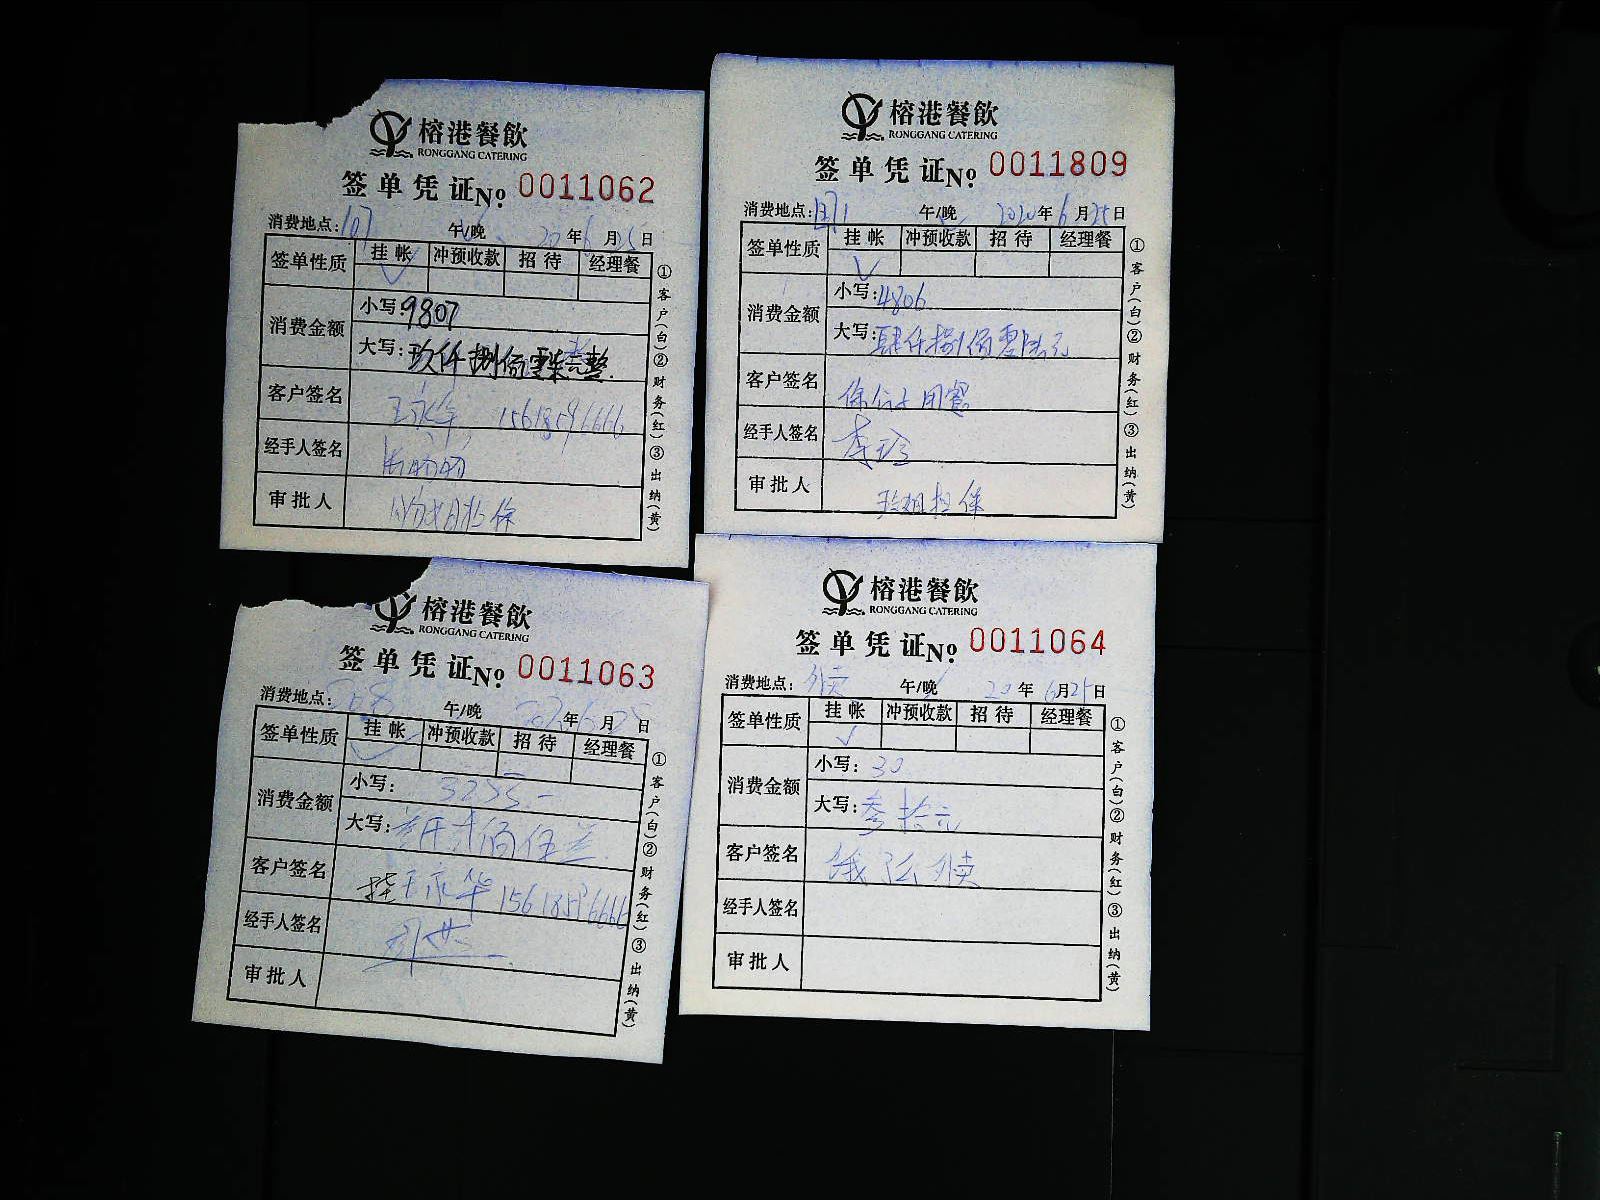 榕港餐飲
RONGGANG CATERING
签单凭证 No. 0011062
消费地点: 107 午/晚 20年6月25日
签单性质 挂帐 冲预收款 招待 经理餐
✓
消费金额
小写: 9807
大写: 玖仟捌佰零柒元整
客户签名 15618596666
经手人签名
审批人
①客户(白)②财务(红)③出纳(黄)
榕港餐飲
RONGGANG CATERING
签单凭证 No. 0011809
消费地点: 午/晚 2020年6月25日
签单性质 挂帐 冲预收款 招待 经理餐
✓
消费金额
小写: 4806
大写: 肆仟捌佰零陆元
客户签名 用餐
经手人签名 李玲
审批人 玲姐担保
①客户(白)②财务(红)③出纳(黄)
榕港餐飲
RONGGANG CATERING
签单凭证 No. 0011063
消费地点: 午/晚 年6月25日
签单性质 挂帐 冲预收款 招待 经理餐
✓
消费金额
小写:
大写:
客户签名 王永华 15618596666
经手人签名
审批人
①客户(白)②财务(红)③出纳(黄)
榕港餐飲
RONGGANG CATERING
签单凭证 No. 0011064
消费地点: 外卖 午/晚 20年6月25日
签单性质 挂帐 冲预收款 招待 经理餐
✓
消费金额
小写: 30
大写: 叁拾元
客户签名 外卖
经手人签名
审批人
①客户(白)②财务(红)③出纳(黄)